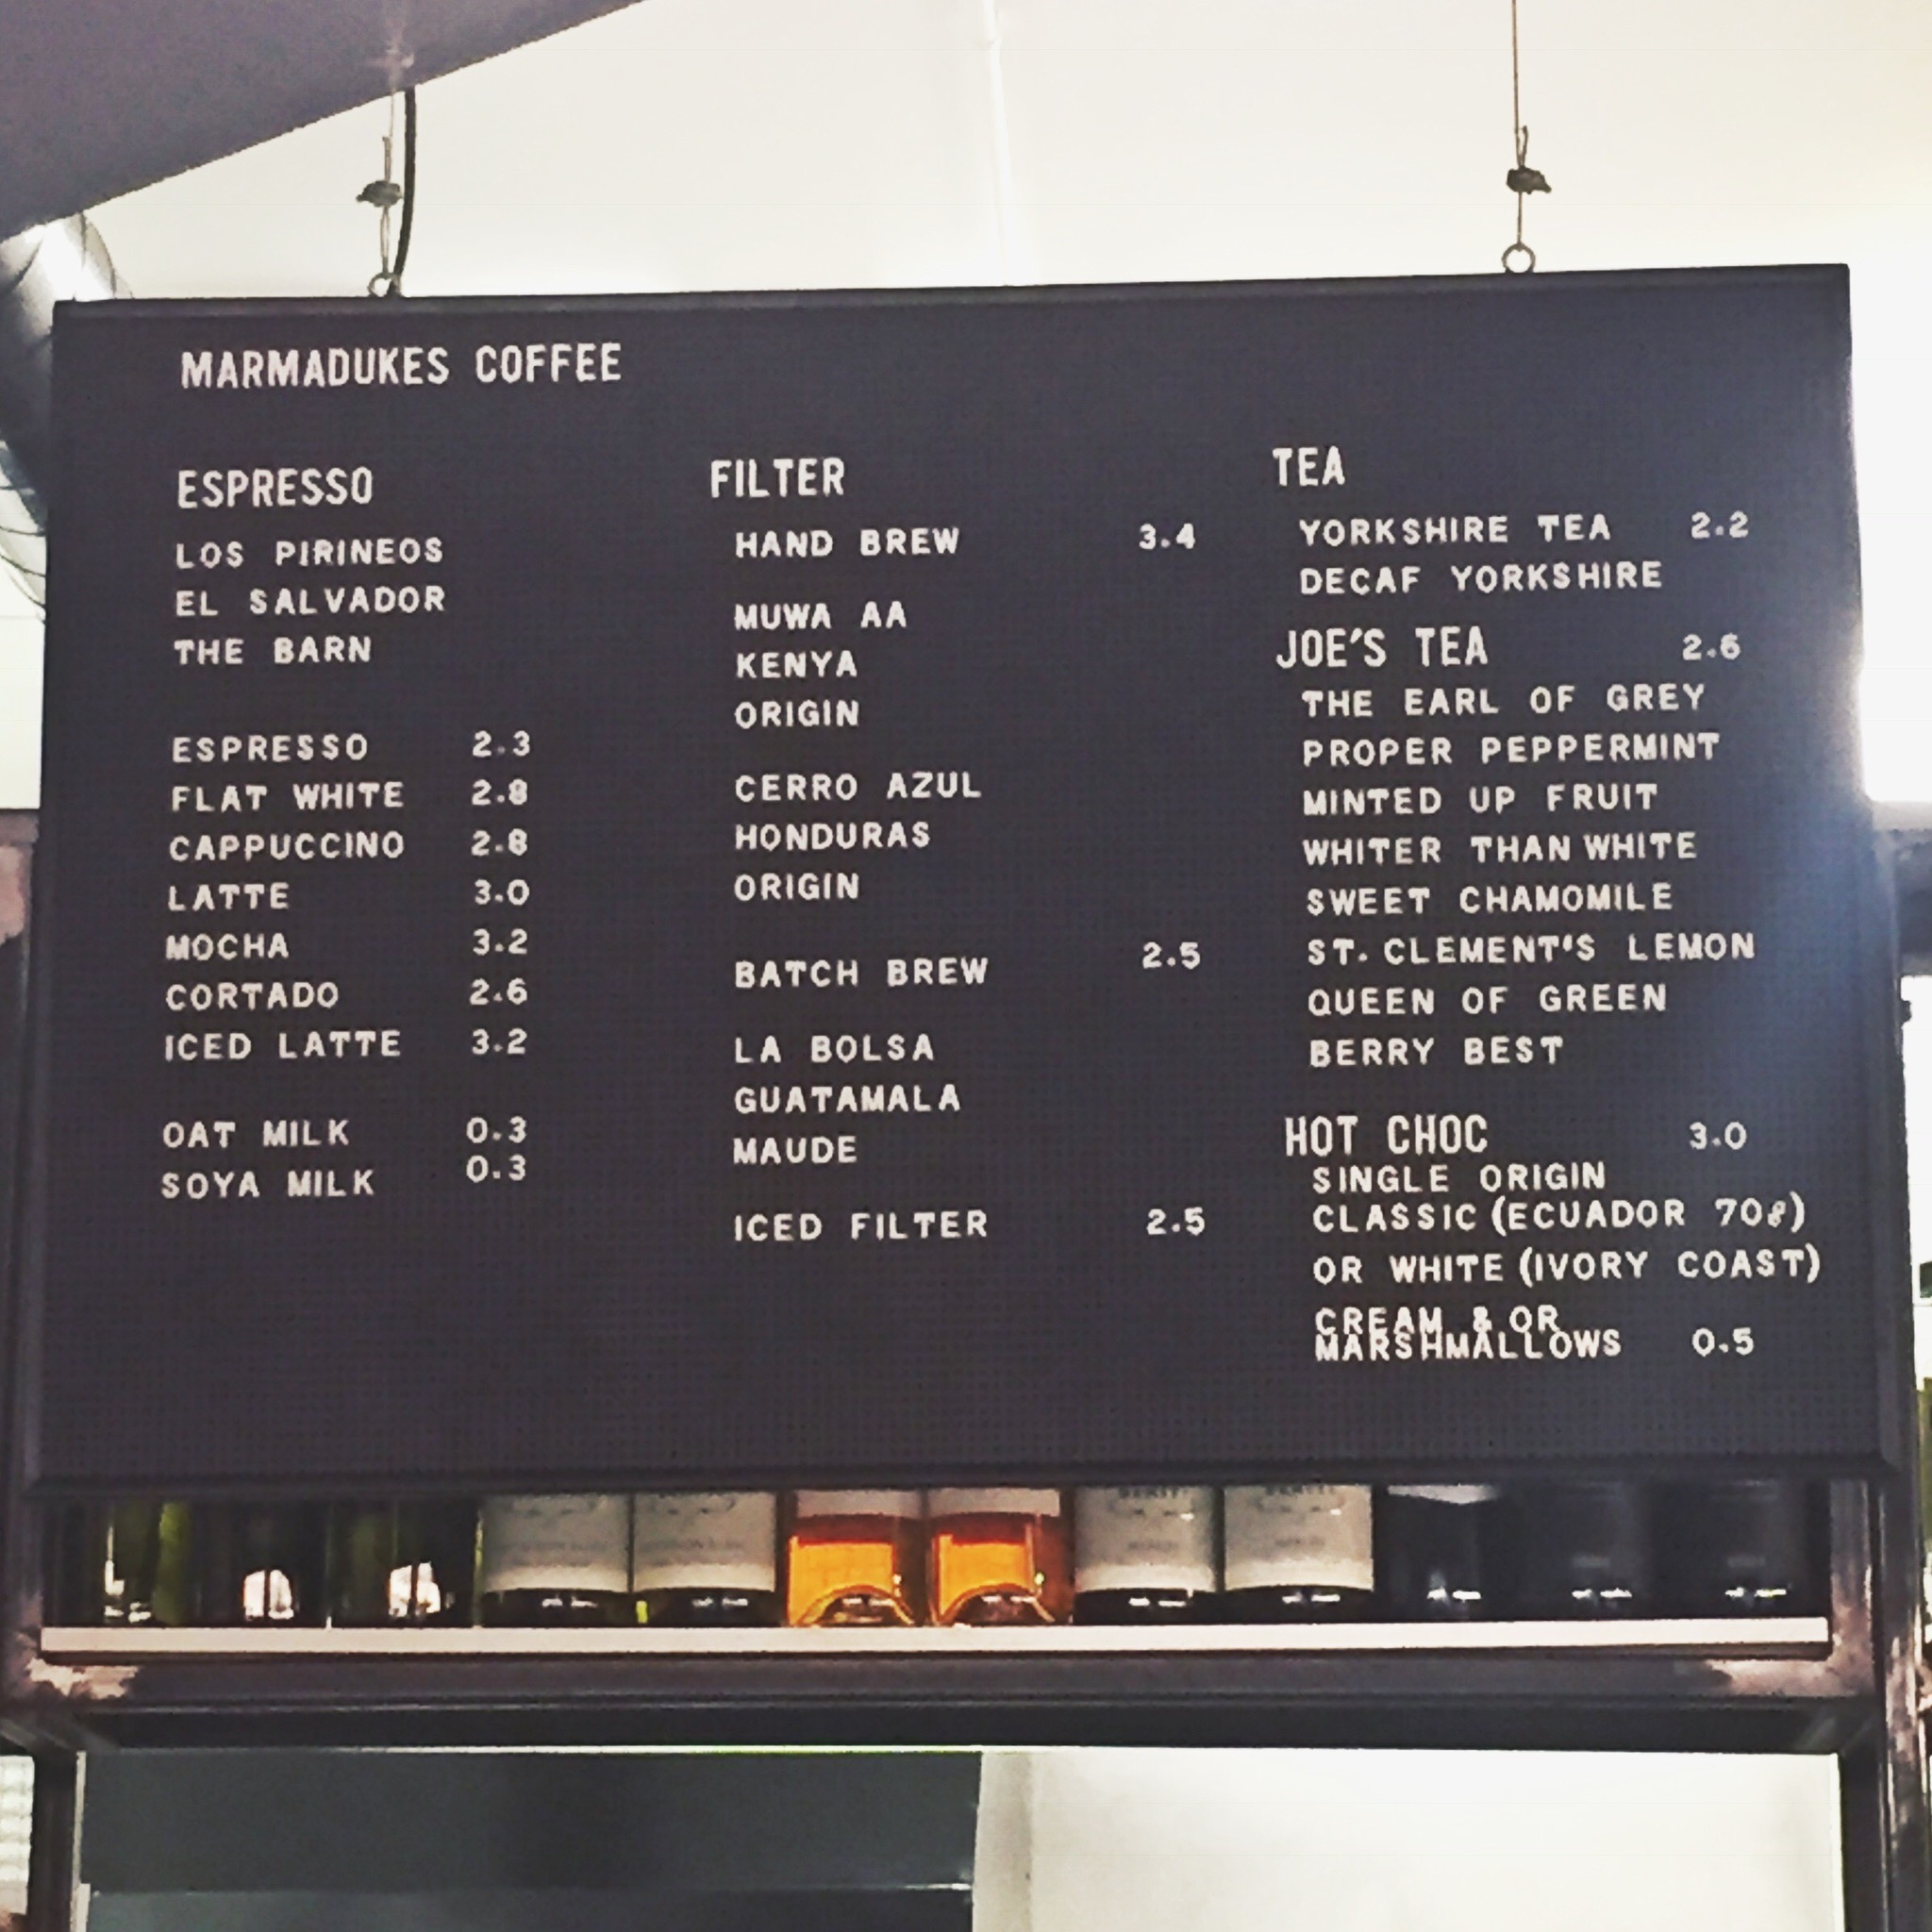 MARMADUKES COFFEE
ESPRESSO
LOS PIRINEOS
EL SALVADOR
THE BARN
ESPRESSO 2.3
FLAT WHITE 2.8
CAPPUCCINO 2.8
LATTE 3.0
MOCHA 3.2
CORTADO 2.6
ICED LATTE 3.2
OAT MILK 0.3
SOYA MILK 0.3
FILTER
HAND BREW 3.4
MUWA AA
KENYA
ORIGIN
CERRO AZUL
HONDURAS
ORIGIN
BATCH BREW 2.5
LA BOLSA
GUATAMALA
MAUDE
ICED FILTER 2.5
TEA
YORKSHIRE TEA 2.2
DECAF YORKSHIRE
JOE'S TEA 2.6
THE EARL OF GREY
PROPER PEPPERMINT
MINTED UP FRUIT
WHITER THAN WHITE
SWEET CHAMOMILE
ST. CLEMENT'S LEMON
QUEEN OF GREEN
BERRY BEST
HOT CHOC 3.0
SINGLE ORIGIN
CLASSIC (ECUADOR 70%)
OR WHITE (IVORY COAST)
CREAM & OR
MARSHMALLOWS 0.5